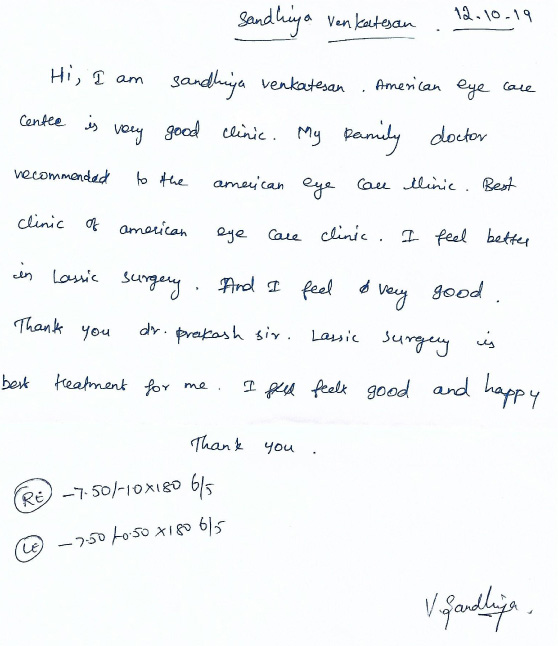 Sandhiya Venkatesan. 12.10.19
Hi, I am Sandhiya Venkatesan. American eye care
Centee is very good clinic. My Family doctor
recommended to the american eye care clinic. Best
clinic of american eye care clinic. I feel better
in Lassic surgery. And I feel very good.
Thank you dr. prakash sir. Lassic surgery is
best treatment for me. I feels good and happy
Thank you.
RE -7.50/-10x180 6/5
LE -7.50/-0.50x180 6/5
V. Sandhiya.